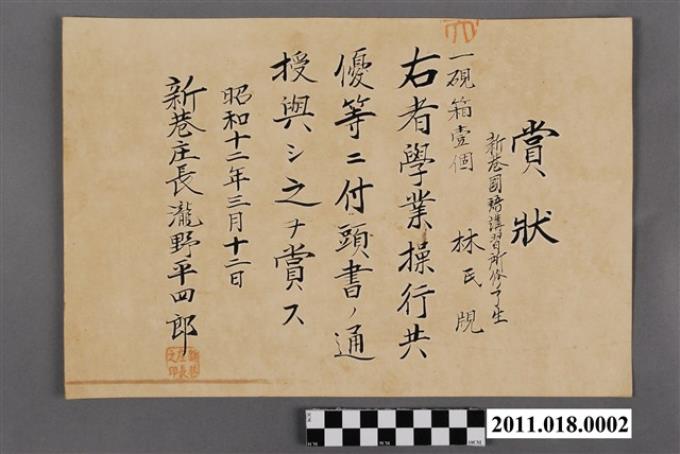 賞狀
新巷國語講習所修了生
林氏
一硯箱壹個
右者學業操行共
優等ニ付頭書ノ通
授與シ之ヲ賞ス
昭和十二年三月十二日
新巷庄長瀧野平四郎
新巷
庄長
之印
2011.018.0002